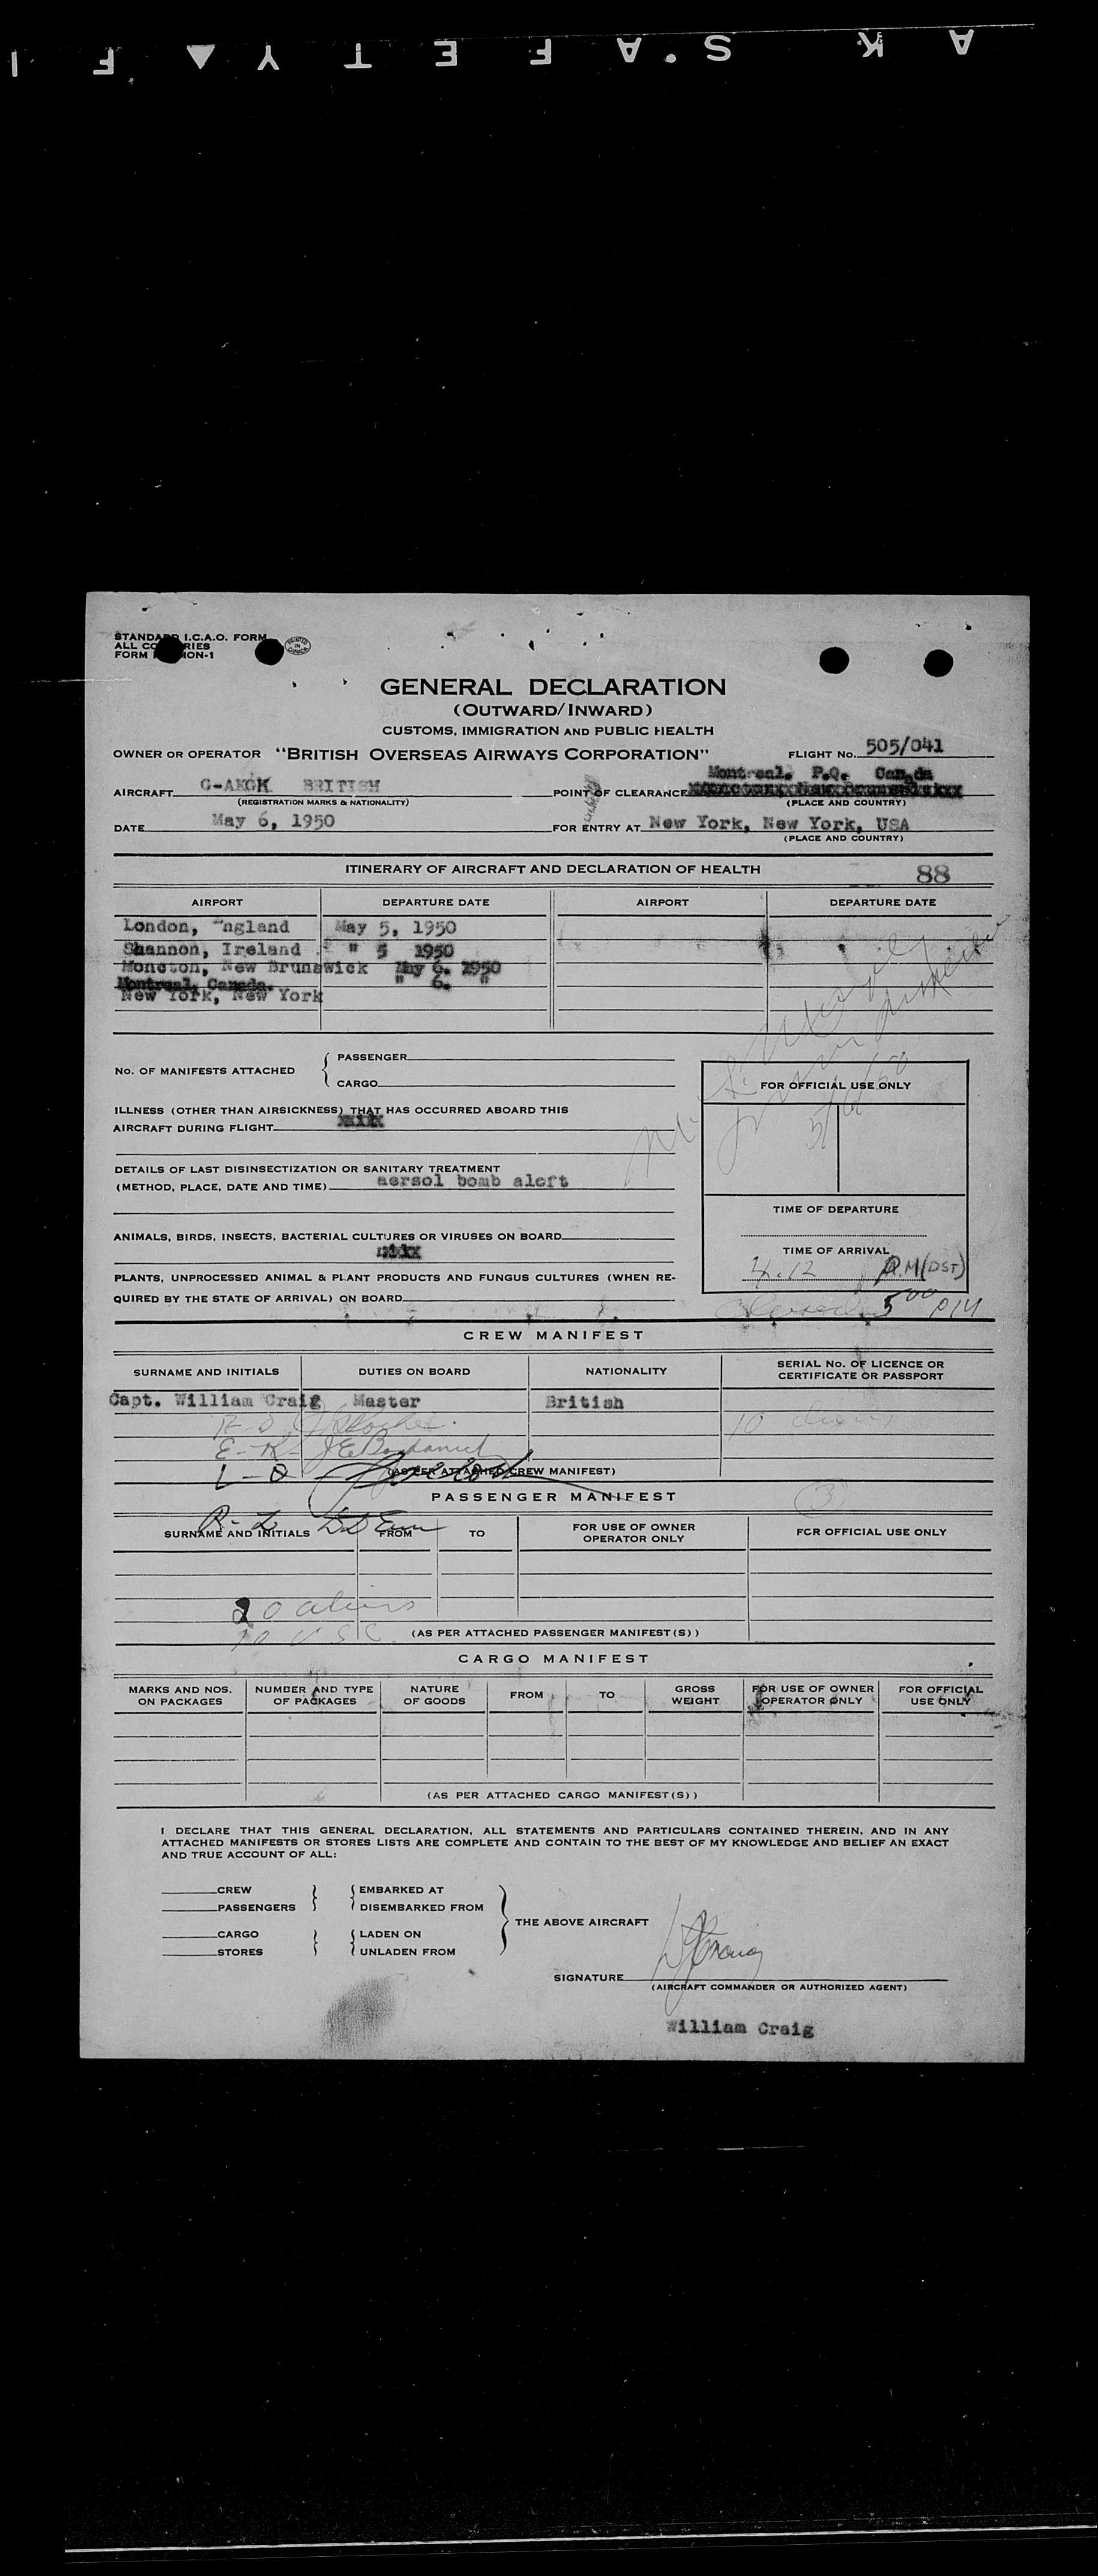 STANDARD I.C.A.O. FORM
ALL COUNTRIES
FORM MON-1
PRINTED IN CANADA
GENERAL DECLARATION
(OUTWARD/INWARD)
CUSTOMS, IMMIGRATION AND PUBLIC HEALTH
OWNER OR OPERATOR "BRITISH OVERSEAS AIRWAYS CORPORATION" FLIGHT No. 505/041
Montreal. P.Q. Canada
AIRCRAFT G-AKGK BRITISH POINT OF CLEARANCE
(REGISTRATION MARKS & NATIONALITY) (PLACE AND COUNTRY)
DATE May 6, 1950 FOR ENTRY AT New York, New York, USA
(PLACE AND COUNTRY)
ITINERARY OF AIRCRAFT AND DECLARATION OF HEALTH 88
AIRPORT DEPARTURE DATE AIRPORT DEPARTURE DATE
London, England May 5, 1950
Shannon, Ireland " 5 1950
Moncton, New Brunswick May 6. 1950
Montreal, Canada. " 6. "
New York, New York
No. OF MANIFESTS ATTACHED { PASSENGER
CARGO
FOR OFFICIAL USE ONLY
5/6/50
ILLNESS (OTHER THAN AIRSICKNESS) THAT HAS OCCURRED ABOARD THIS
AIRCRAFT DURING FLIGHT
DETAILS OF LAST DISINSECTIZATION OR SANITARY TREATMENT
(METHOD, PLACE, DATE AND TIME) aersol bomb aloft
TIME OF DEPARTURE
ANIMALS, BIRDS, INSECTS, BACTERIAL CULTURES OR VIRUSES ON BOARD
TIME OF ARRIVAL
4.12 P.M (DST)
PLANTS, UNPROCESSED ANIMAL & PLANT PRODUCTS AND FUNGUS CULTURES (WHEN RE-
QUIRED BY THE STATE OF ARRIVAL) ON BOARD
Cleared 5 00 PM
CREW MANIFEST
SURNAME AND INITIALS DUTIES ON BOARD NATIONALITY SERIAL No. OF LICENCE OR CERTIFICATE OR PASSPORT
Capt. William Craig Master British
10 crew
E-K
L-Q (AS PER ATTACHED CREW MANIFEST)
PASSENGER MANIFEST 3
R-Z
SURNAME AND INITIALS FROM TO FOR USE OF OWNER OPERATOR ONLY FOR OFFICIAL USE ONLY
20 aliens
10 U S C. (AS PER ATTACHED PASSENGER MANIFEST(S))
CARGO MANIFEST
MARKS AND NOS. ON PACKAGES NUMBER AND TYPE OF PACKAGES NATURE OF GOODS FROM TO GROSS WEIGHT FOR USE OF OWNER OPERATOR ONLY FOR OFFICIAL USE ONLY
(AS PER ATTACHED CARGO MANIFEST(S))
I DECLARE THAT THIS GENERAL DECLARATION, ALL STATEMENTS AND PARTICULARS CONTAINED THEREIN, AND IN ANY
ATTACHED MANIFESTS OR STORES LISTS ARE COMPLETE AND CONTAIN TO THE BEST OF MY KNOWLEDGE AND BELIEF AN EXACT
AND TRUE ACCOUNT OF ALL:
CREW } { EMBARKED AT
PASSENGERS DISEMBARKED FROM
} THE ABOVE AIRCRAFT
CARGO } { LADEN ON
STORES UNLADEN FROM
SIGNATURE W Craig
(AIRCRAFT COMMANDER OR AUTHORIZED AGENT)
William Craig